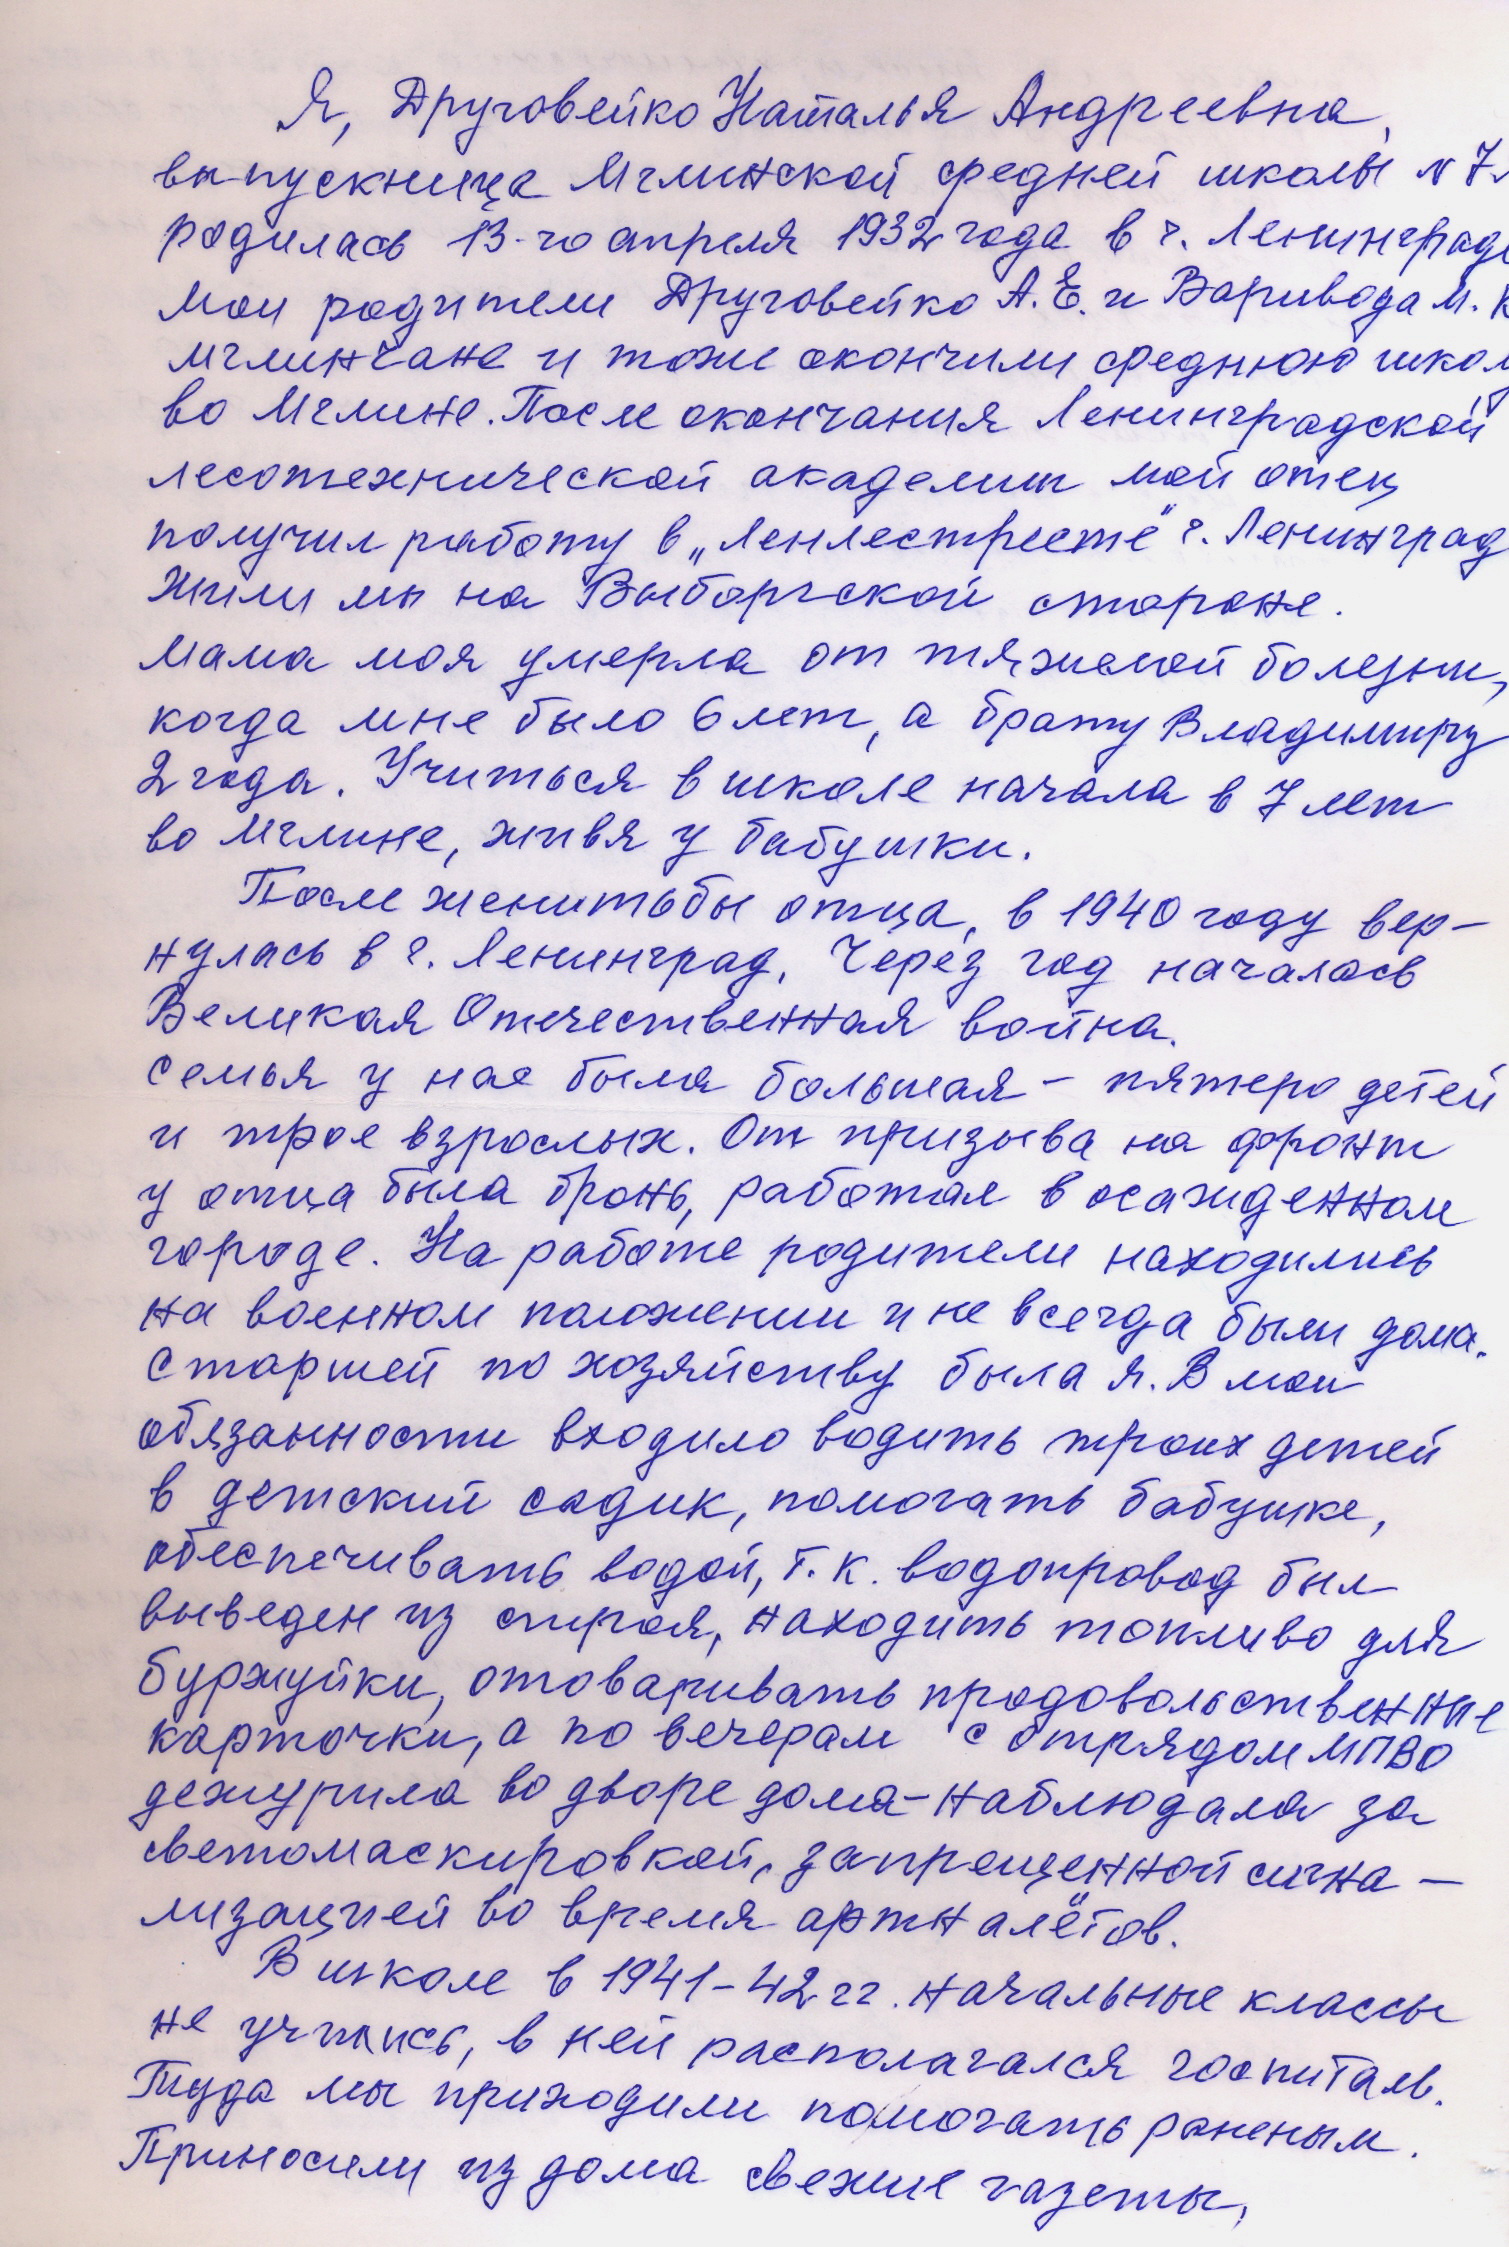 Я, Друговейко Наталья Андреевна,
выпускница Мглинской средней школы №
родилась 13-го апреля 1932 года в г. Ленинграде
Мои родители Друговейко А.Е. и Варивода М.
мглинчане и тоже окончили среднюю школу
во Мглине. После окончания Ленинградской
лесотехнической академии мой отец
получил работу в „Ленлестресте" г. Ленинград
Жили мы на Выборгской стороне.
Мама моя умерла от тяжелой болезни,
когда мне было 6 лет, а брату Владимиру
2 года. Учиться в школе начала в 7 лет
во Мглине, живя у бабушки.
После женитьбы отца, в 1940 году вер-
нулась в г. Ленинград. Через год началась
Великая Отечественная война.
Семья у нас была большая - пятеро детей
и трое взрослых. От призыва на фронт
у отца была бронь, работал в осажденном
городе. На работе родители находились
на военном положении и не всегда были дома.
Старшей по хозяйству была я. В мои
обязанности входило водить троих детей
в детский садик, помогать бабушке,
обеспечивать водой, т.к. водопровод был
выведен из строя, находить топливо для
буржуйки, отоваривать продовольственные
карточки, а по вечерам с отрядом МПВО
дежурила во дворе дома - наблюдала за
светомаскировкой, запрещенной сигна-
лизацией во время артналётов.
В школе в 1941-42 гг. начальные классы
не учились, в ней располагался госпиталь.
Туда мы приходили помогать раненым.
Приносили из дома свежие газеты,